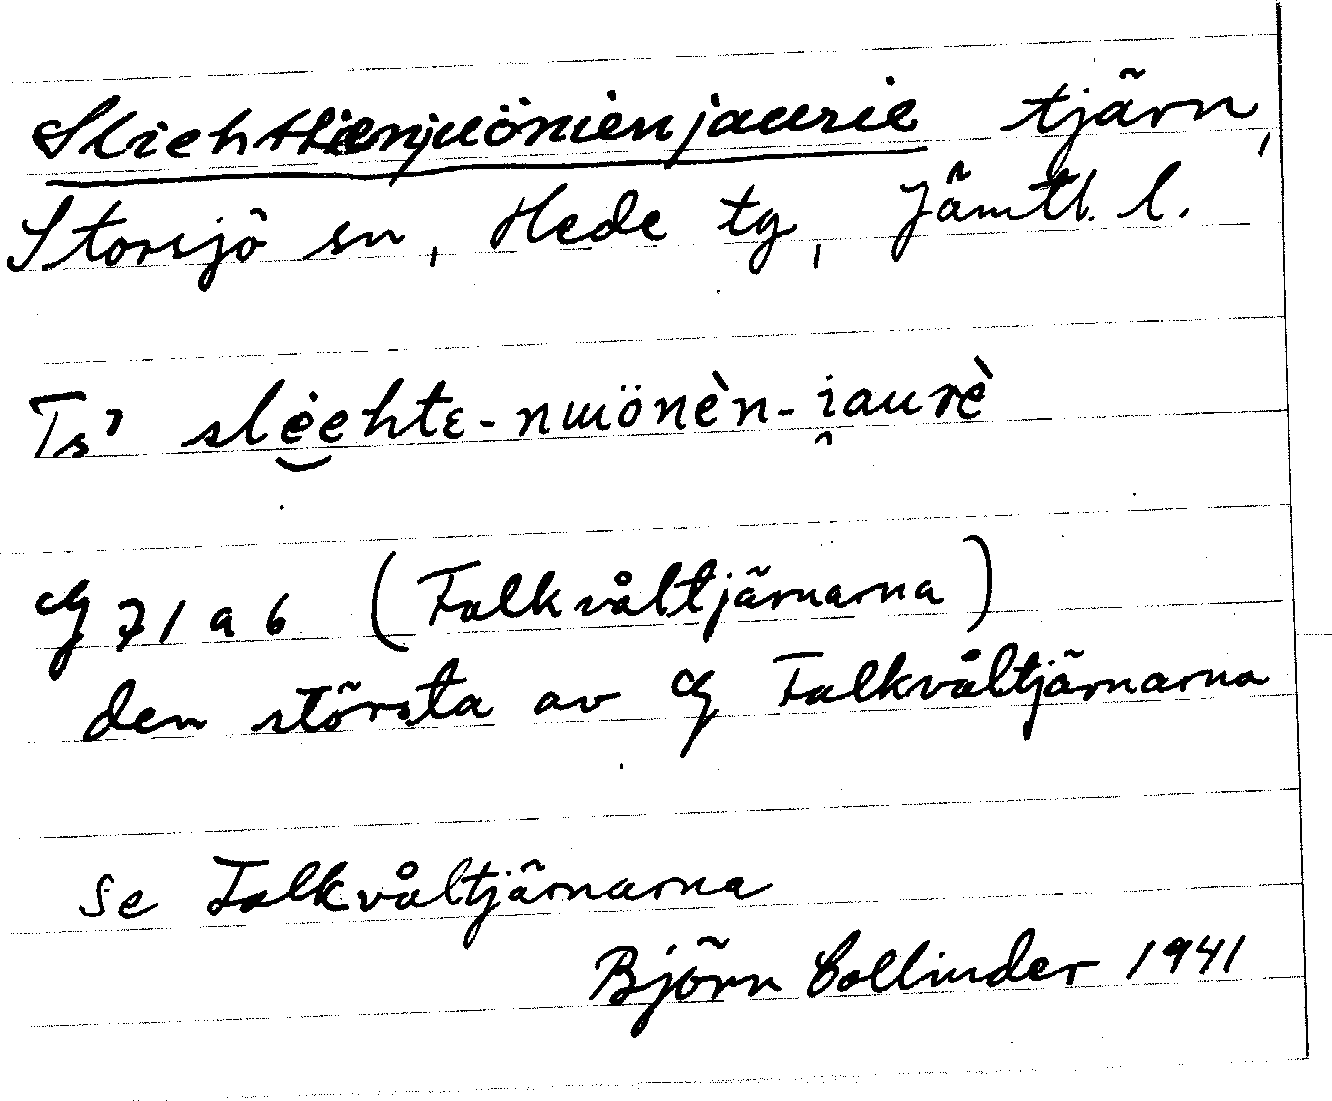 Sliehtienjuönienjaurie tjärn,
Storsjö sn, Hede tg, Jämtl. l.
Ts' slėehtε-nɯönèn-i̯aurè
Cg 71 a 6 (Falkvåltjärnarna)
den största av Cg Falkvåltjärnarna
Se Falkvåltjärnarna
Björn Collinder 1941